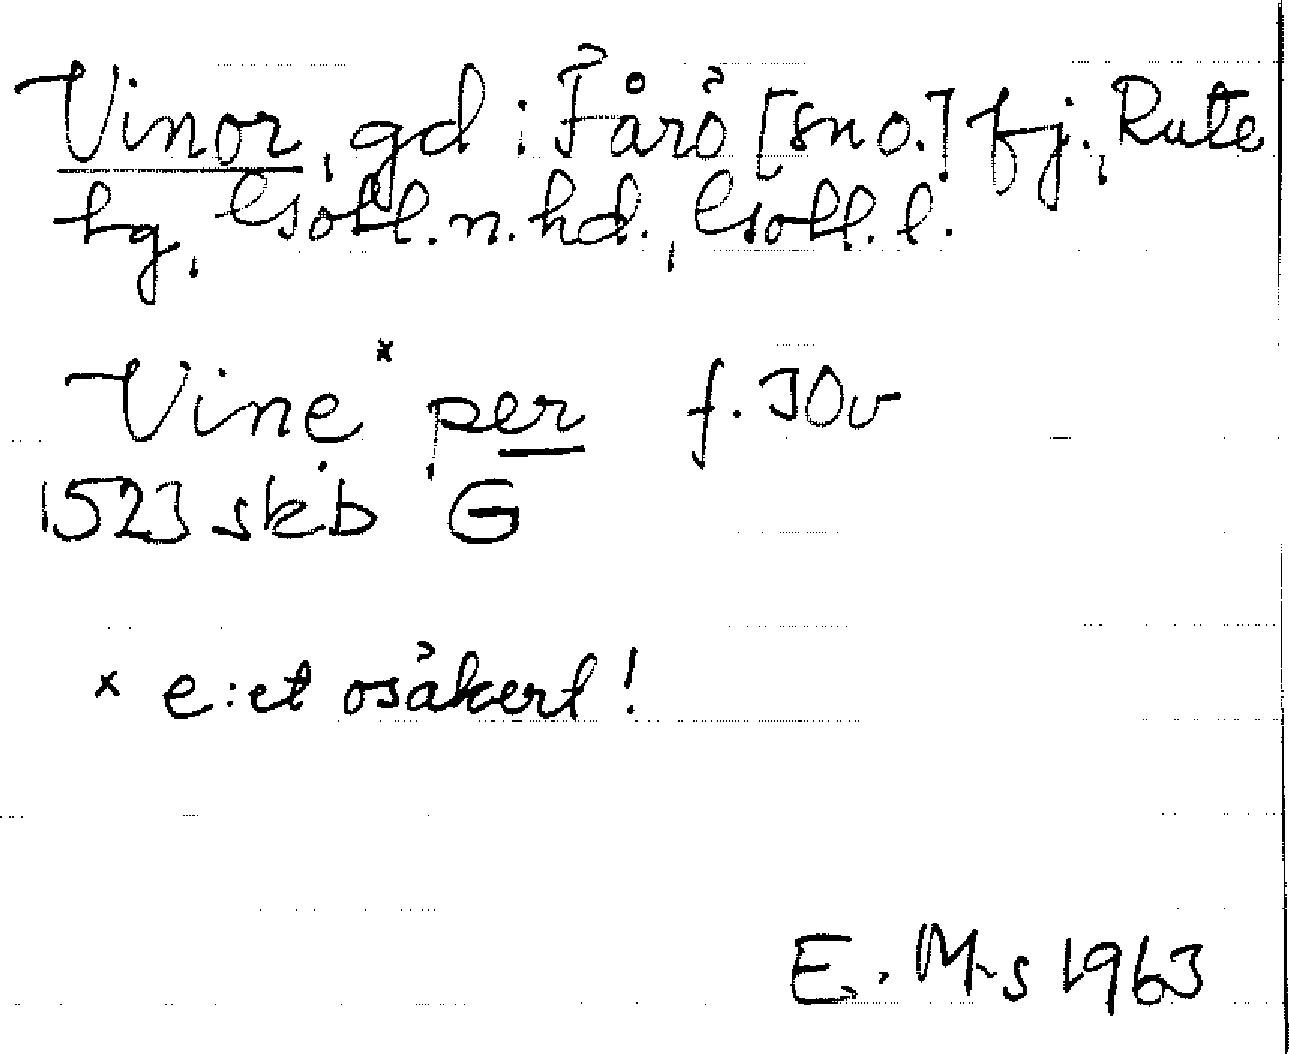 Vinor, gd i Fårö [sno.] fj., Rute
tg, Gotl. n. hd., Gotl. l.
Vine* per f. 30v
1523 skb G
* e:et osäkert!
E. M-s 1963